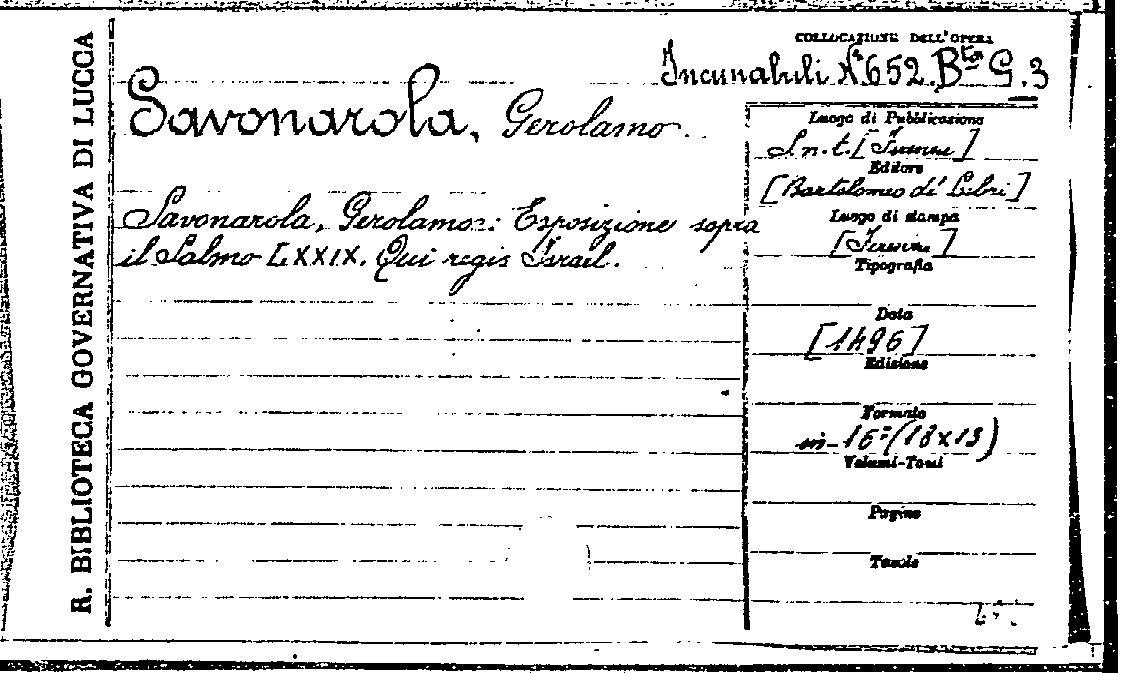 R. BIBLIOTECA GOVERNATIVA DI LUCCA
COLLOCAZIONE DELL'OPERA
Incunabuli N.º 652. Bta G.3
Savonarola, Gerolamo.
Savonarola, Gerolamo: Esposizione sopra
il Salmo LXXIX. Qui regis Israel.
Luogo di Pubblicazione
S.n.t. [Firenze]
Editore
[Bartolomeo de' Libri]
Luogo di stampa
[Firenze]
Tipografia
Data
[1496]
Edizione
Formato
in-16º (18x13)
Volumi-Tomi
Pagine
Tavole